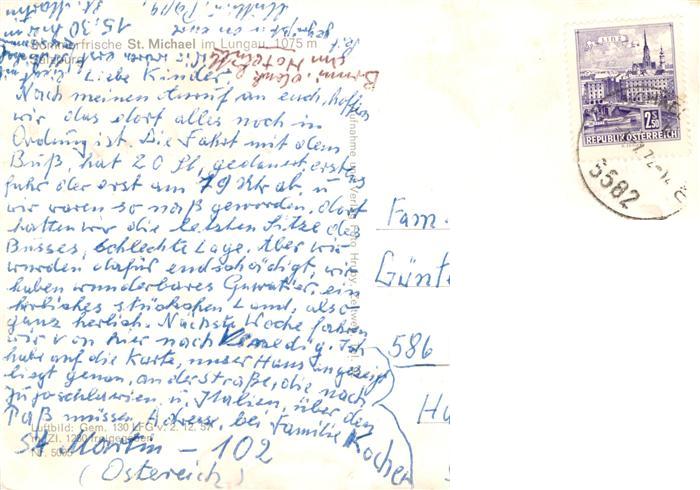 15.30
Sommerfrische St. Michael im Lungau, 1075 m
Salzburg
Liebe Kinder
Nach meinen Anruf an euch, hoffen
wir das dort alles noch in
Ordnung ist. Die Fahrt mit dem
Buß, hat 20 St, gedauert erst
fuhr der erst am 19 Uhr ab, u
wir waren so naß geworden, dort
hatten wir die letzten Sitze des
Busses, schlechte Lage. Aber wir
wurden dafür endschädigt, wir
haben wunderbares Quartier ein
herliches stückchen Land, also
ganz herlich. Nächste Woche fahren
wir von hier nach Venedig. Ich
habe auf die Karte, unser Haus angezeigt
liegt genau, an der straße, die nach
Jugoschlawien u. Italien, über den
Paß müssen. Adresse, bei Familie Kocher
St Martin - 102
(Östereich)
Luftbild: Gem. 130 LFG v. 2. 12. 57
Nr. 5085
LINZ
2.S50
REPUBLIK ÖSTERREICH
5582
Fam.
Günt
586